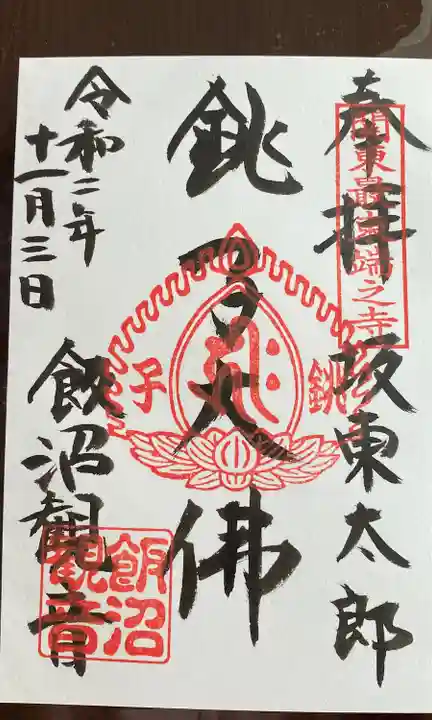 奉拝 坂東太郎
關東最東端之寺
銚子大佛
銚子
令和二年
十一月三日
飯沼観音
飯沼
觀音